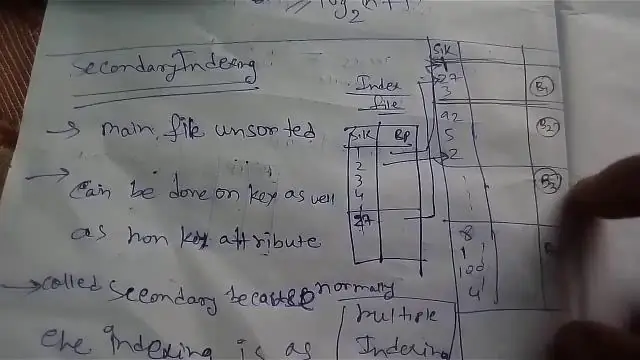 log₂ n + 1
Secondary Indexing
→ main file unsorted
→ Can be done on key as well
as non key attribute
→ called secondary because normally
the indexing is as
Index
file
S.K BP
1
2
3
4
27
S.K
1
27
3
B1
92
5
2
B2
B3
8
1
100
4
Multiple
Indexing